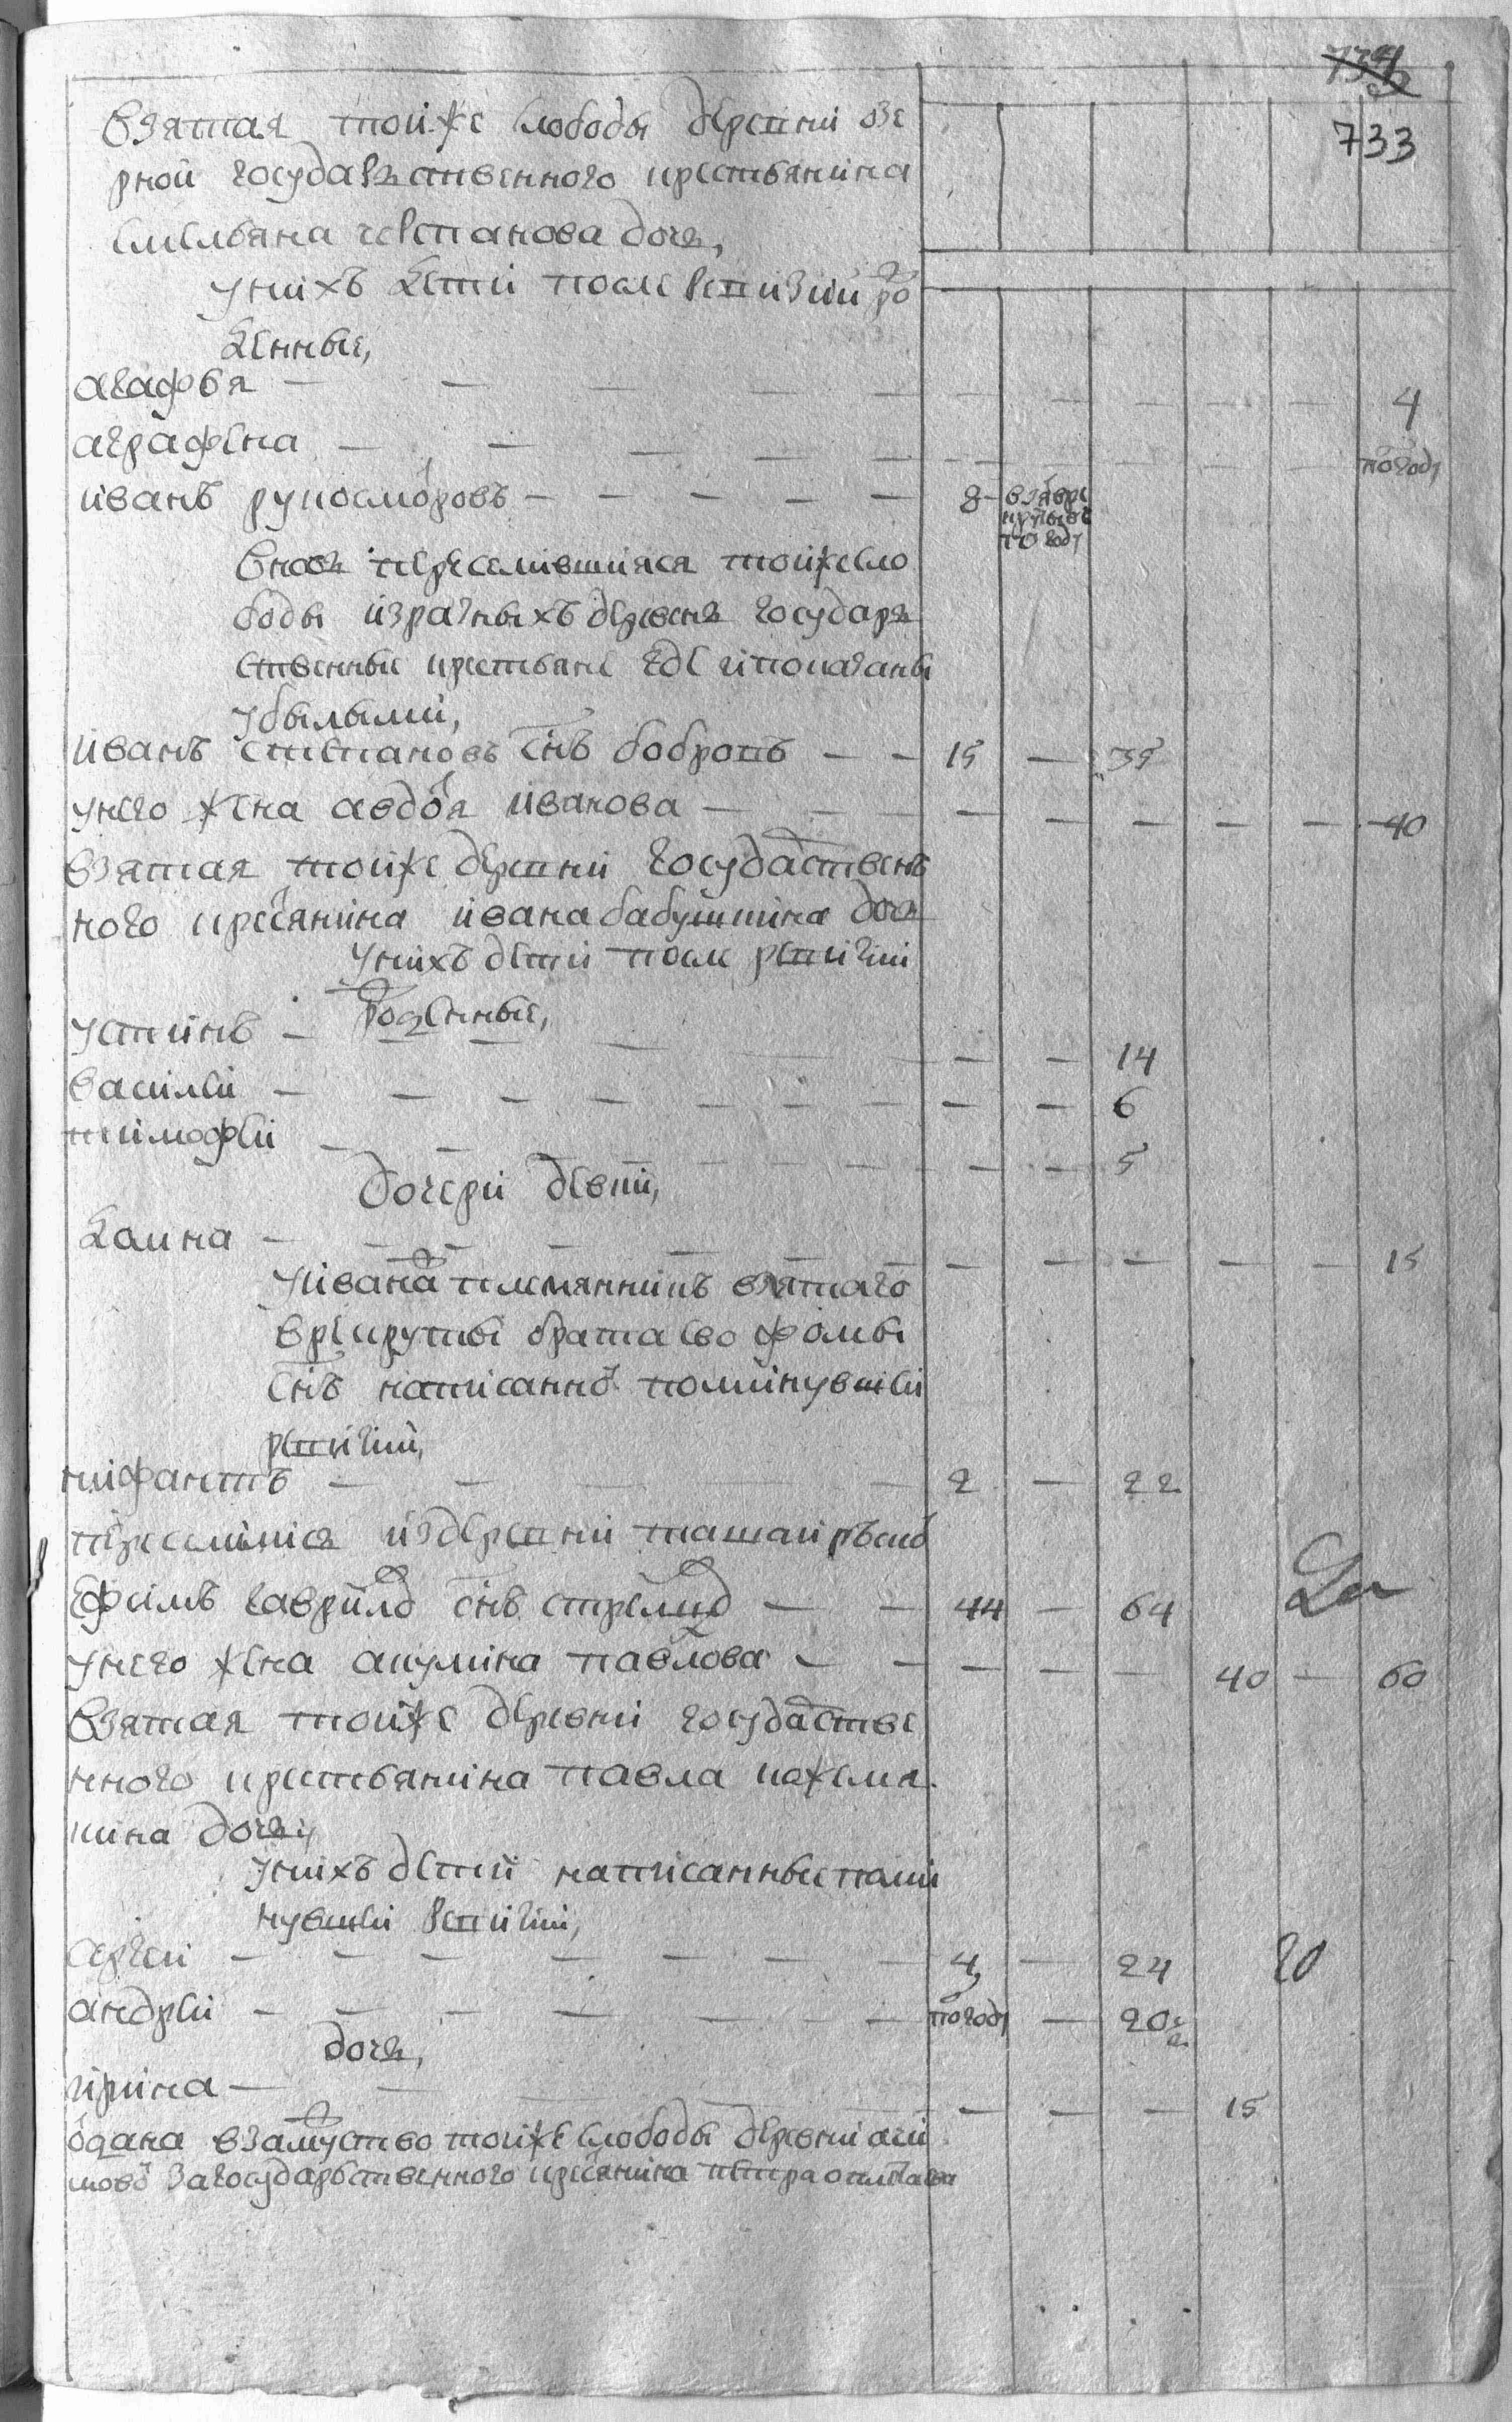 734
733
взятая тойже слободы деревни озе
рной государственного крестьянина
емельяна черепанова дочь,
у них дети после ревизии ро
жденные,
агафья — — — — — — — — 4
аграфена — — — — — — — — погоду
иванъ рукосморовъ — — — — — 8 — взявре крутыве погоду
вновь переселившияся тойжесло
боды изразныхъ деревень государь
ственные крестьяне где ипоказаны
убылыми,
иванъ степановъ снъ бобровъ — — 15 — 35
унего жена авдотья иванова — — — — — — — — 40
взятая тойже деревни государственъ
ного крестьянина ивана бабушкина дочь
унихъ дети после ревизии
рожденные,
устинъ — — — — — — 14
василеи — — — — — — — — — 6
тимофеи — — — — — — — — 5
дочери девки,
галина — — — — — — — — — — — 15
уивана племянникъ взятаго
врекруты брата ево фомы
снъ написанной поминувшеи
ревизии,
нифантъ — — — — 2 — 22
переселился издеревни ташаирской
ефимъ гавриловъ снъ стрелковъ — — 44 — 64
унего жена акулина павлова — — — — — 40 — 60
взятая тойже деревни государстве
нного крестьянина павла кожемя
кина дочь,
унихъ дети написанные поми
нувшеи ревизии,
сергеи — — — — — — — 4 — 24 20
андреи — — — — — — погоду — 20
дочь,
ирина — — — — — 15
отдана взамуство тойже слободы деревни
шовой загосударственного крестьянина петра